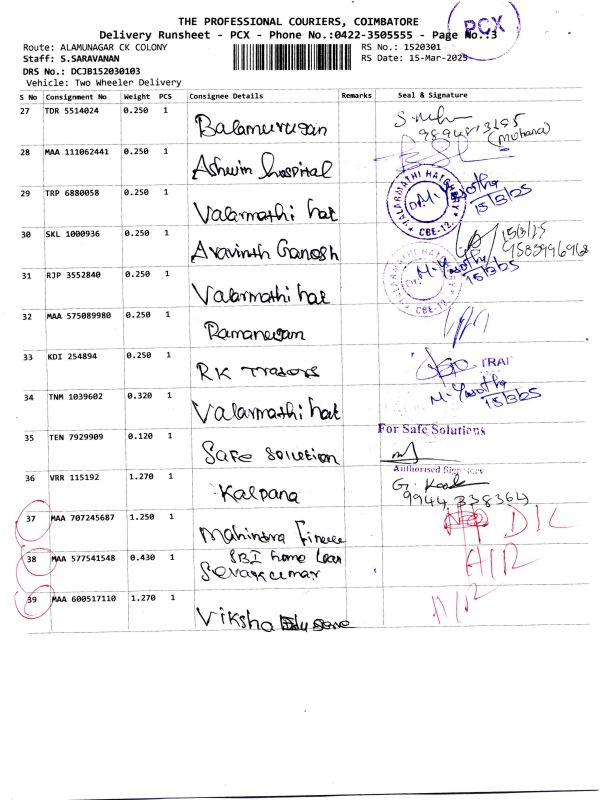 THE PROFESSIONAL COURIERS, COIMBATORE
Delivery Runsheet - PCX - Phone No.:0422-3505555 - Page No.:3
PCX
Route: ALAMUNAGAR CK COLONY
RS No.: 1520301
Staff: S.SARAVANAN
RS Date: 15-Mar-2025
DRS No.: DCJB152030103
Vehicle: Two Wheeler Delivery
S No Consignment No Weight PCS Consignee Details Remarks Seal & Signature
27 TDR 5514024 0.250 1 Balamurugan
(Mohana)
28 MAA 111062441 0.250 1 Ashwin hospital
29 TRP 6880058 0.250 1 Valarmathi hat
VALARMATHI HATCHERY CBE-12
15/3/25
30 SKL 1000936 0.250 1 Aravinth Ganesh
15/3/25
9585996968
31 RJP 3552840 0.250 1 Valarmathi hat
VALARMATHI HATCHERY CBE-12
15/3/25
32 MAA 575089980 0.250 1
33 KDI 254894 0.250 1 RK Traders
TRAI
34 TNM 1039602 0.320 1 Valarmathi hat
15/3/25
35 TEN 7929909 0.120 1 Safe solution
For Safe Solutions
Authorised Signatory
36 VRR 115192 1.270 1 Kalpana
9944338364
37 MAA 707245687 1.250 1 Mahindra Finance
D/L
38 MAA 577541548 0.430 1 SBI home loan
Selvakumar
A/R
39 MAA 600517110 1.270 1 Viksha